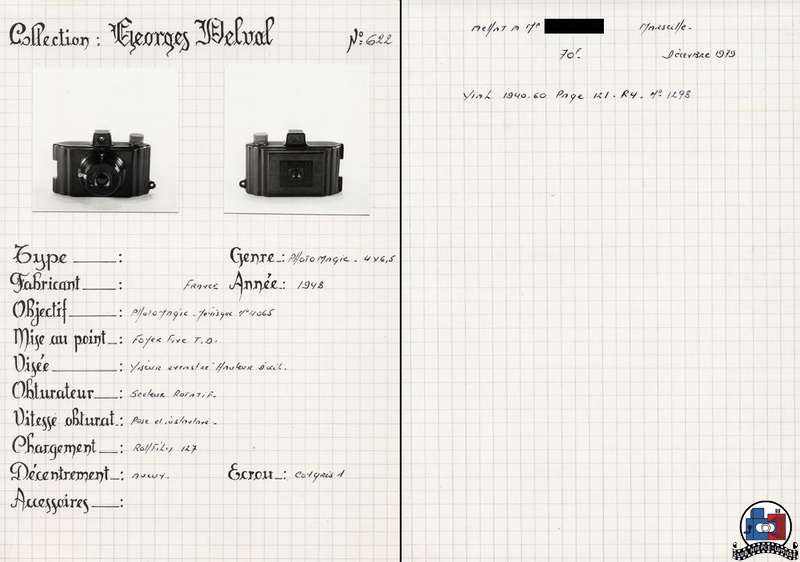 Collection : Georges Delval N° 622
Type : Genre : PhotoMagic - 4x6,5
Fabricant : France Année : 1948
Objectif : PhotoMagic. N° 4065
Mise au point : Foyer Fixe T.O.
Visée : Viseur Hauteur d'œil.
Obturateur : Secteur Rotatif.
Vitesse obturat. : Pose et instantané.
Chargement : Roll Film 127
Décentrement : Ecrou : 1
Accessoires :
Marseille.
70F. Décembre 1979
1940.60 Page 121 - R4. N° 1298